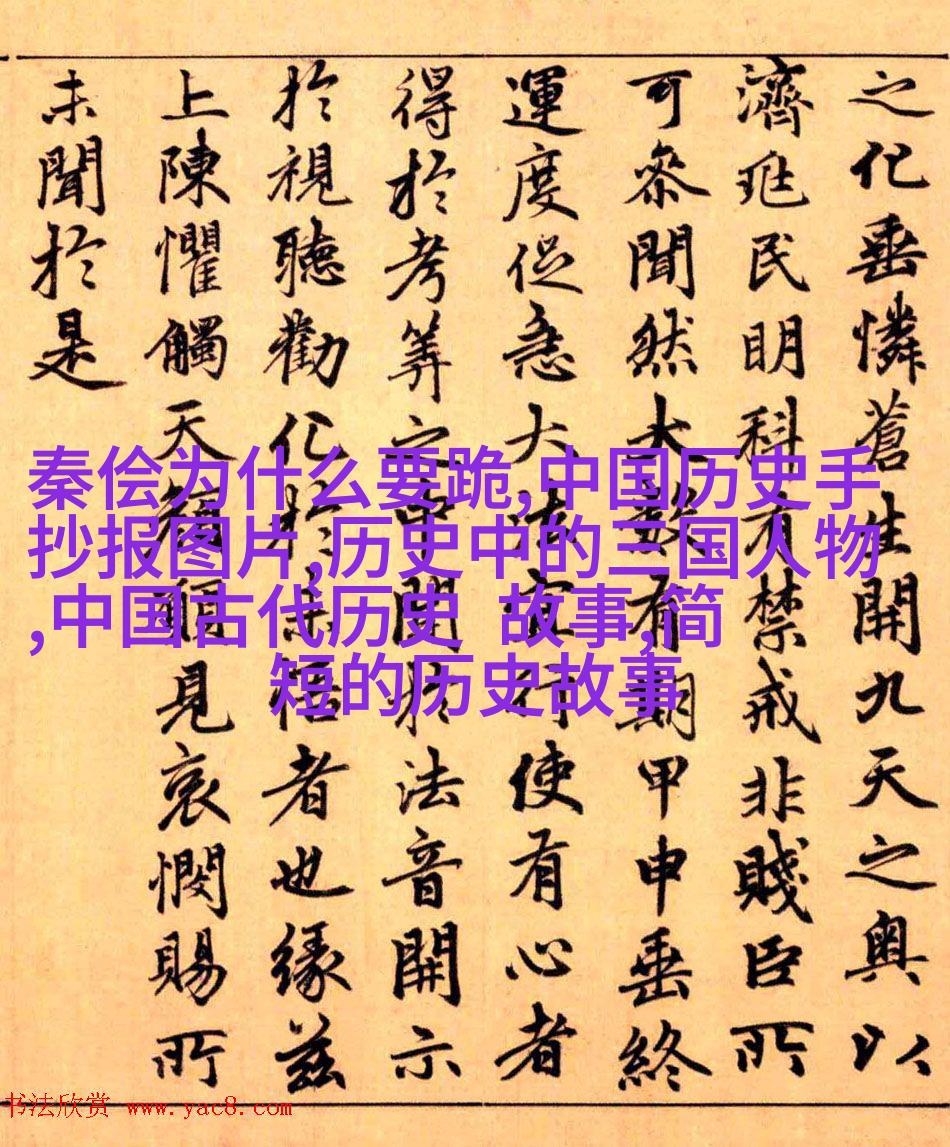 之化垂憐蒼生開九天之奥以
濟兆民明科有禁戒非賤臣所
可叅聞然大數有期甲申垂終
運度促急大法宜行使有心者
得於考筭之中開於法音開示
於視聽勸化於未悟者也緣茲
上陳懼觸天見哀憫賜所
未聞於是
秦侩为什么要跪,中国历史手
抄报图片,历史中的三国人物
,中国古代历史 故事,简
短的历史故事
书法欣赏 www.yac8.com